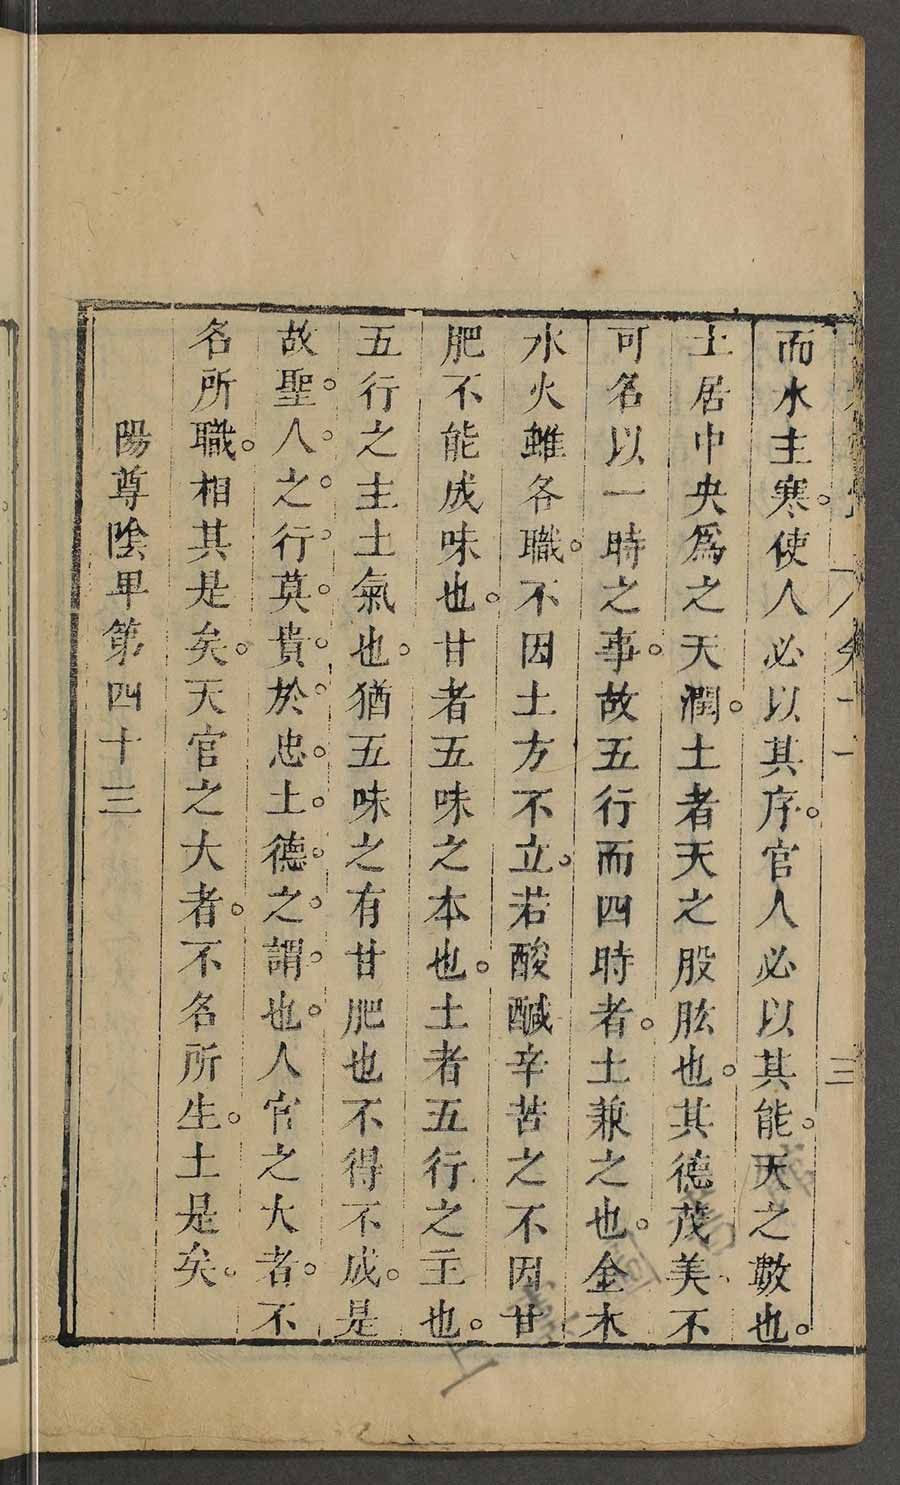 而水主寒。使人必以其序。官人必以其能。天之數也。
土居中央爲之天潤。土者天之股肱也。其德茂美不
可名以一時之事。故五行而四時者。土兼之也。金木
水火雖各職。不因土方不立。若酸鹹辛苦之不因甘
肥不能成味也。甘者五味之本也。土者五行之主也。
五行之主土氣也。猶五味之有甘肥也不得不成。是
故聖。人。之。行。莫。貴。於。忠。土。德。之。謂。也。人官之大者。不
名所職。相其是矣。天官之大者。不名所生。土是矣。
陽尊陰卑第四十三